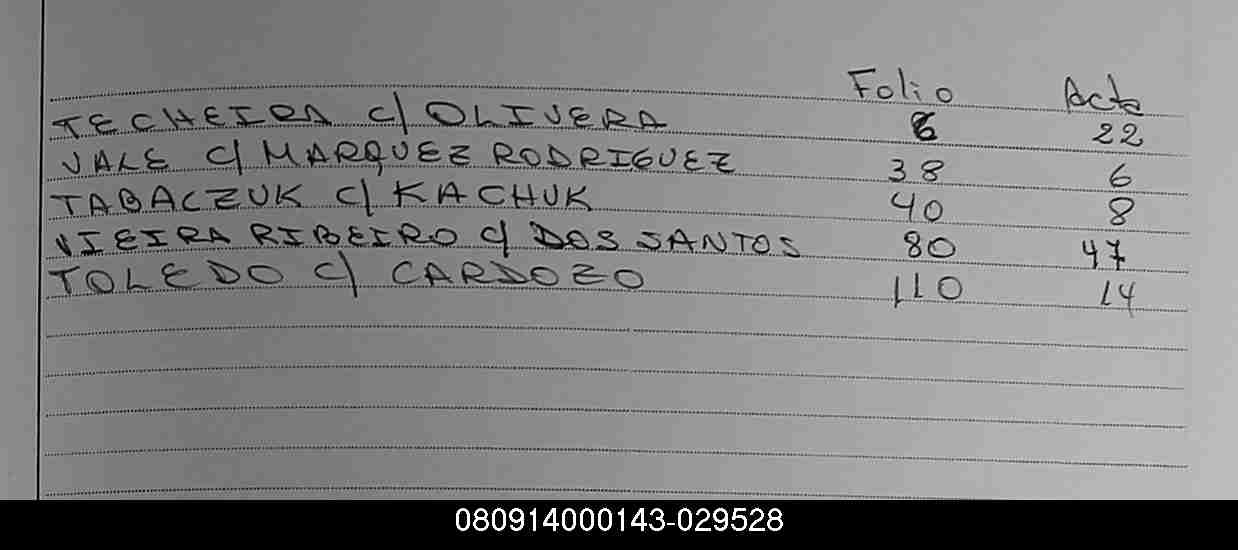 Folio Acta
TECHEIRA C/ OLIVERA 6 22
VALE C/ MARQUEZ RODRIGUEZ 38 6
TABACZUK C/ KACHUK 40 8
VIEIRA RIBEIRO C/ DOS SANTOS 80 47
TOLEDO C/ CARDOZO 110 14
080914000143-029528